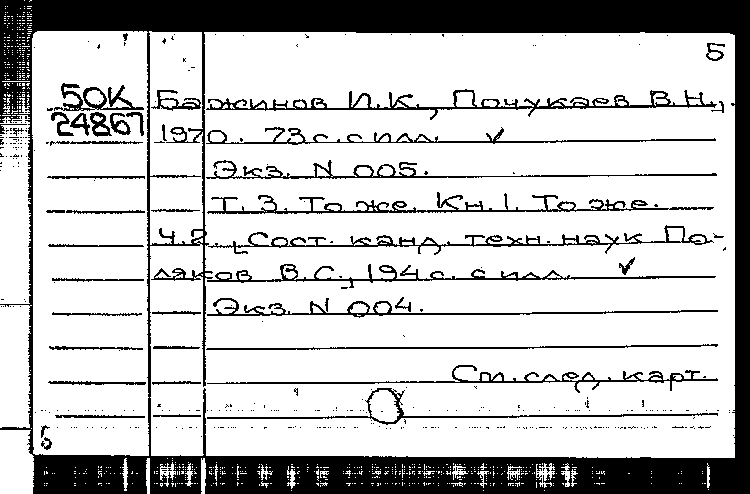 5
50К
24867
Бажинов И.К., Почукаев В.Н.,
1970. 73 с. с илл. ✓
Экз. N 005.
Т. 3. То же. Кн. 1. То же.
Ч.2. [Сост. канд. техн. наук По-
ляков В.С.], 194 с. с илл. ✓
Экз. N 004.
См. след. карт.
5